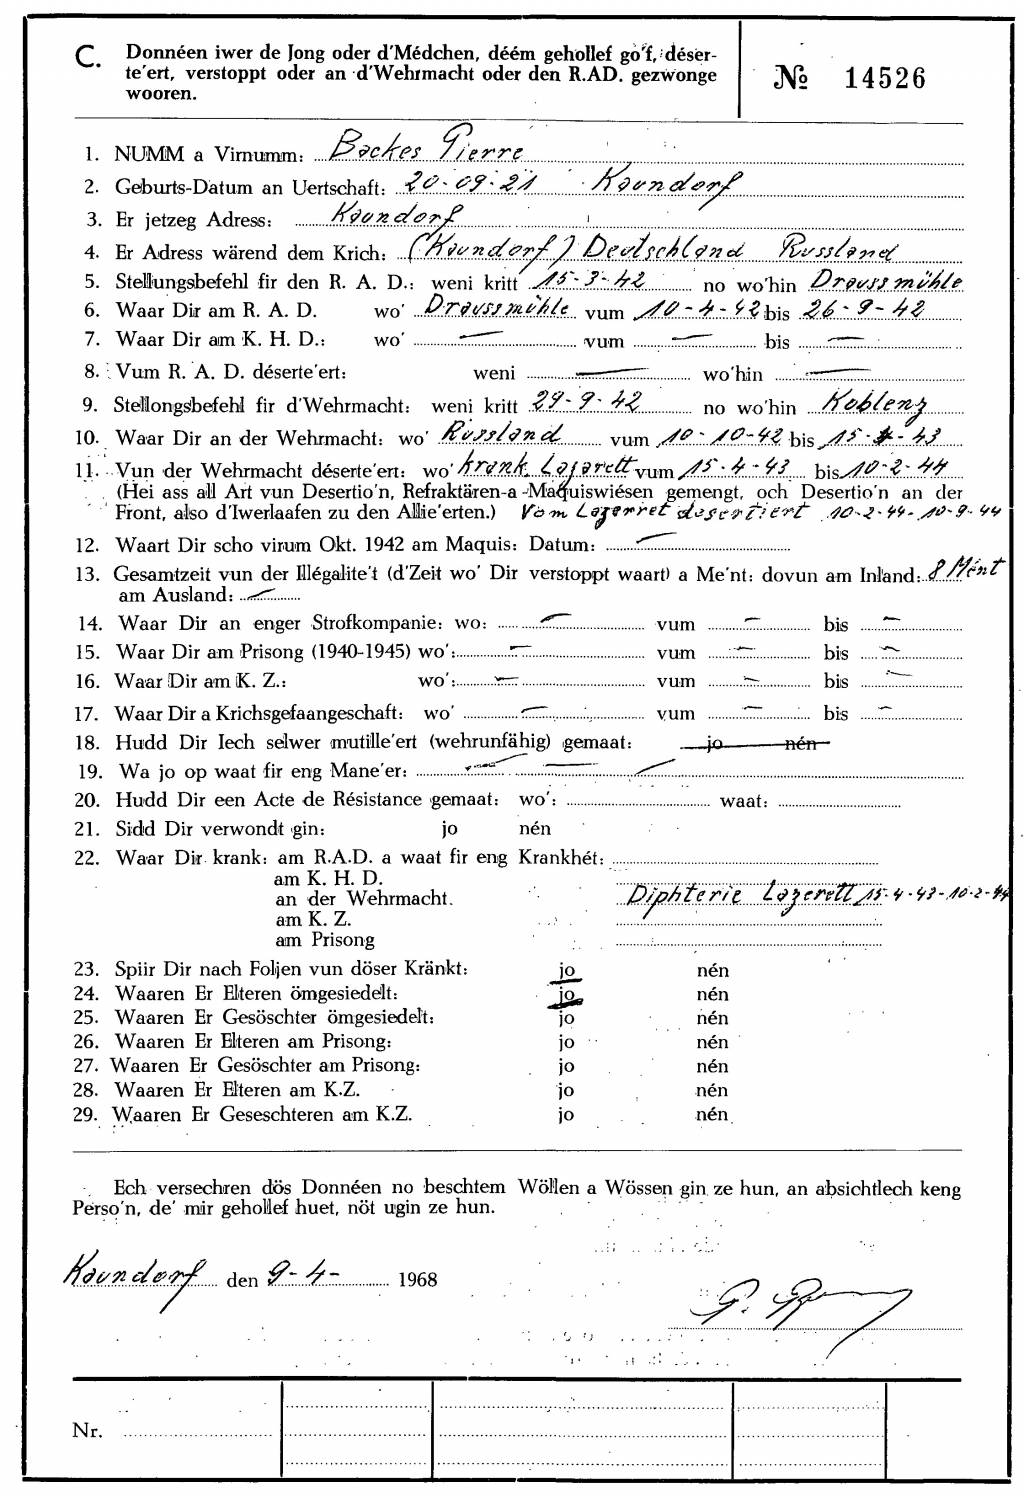 C. Donnéen iwer de Jong oder d'Médchen, déém gehollef go'f, déser-
te'ert, verstoppt oder an d'Wehrmacht oder den R.AD. gezwonge
wooren.
№ 14526
1. NUMM a Virnumm: Backes Pierre
2. Geburts-Datum an Uertschaft: 20-09-21 Kaundorf
3. Er jetzeg Adress: Kaundorf
4. Er Adress wärend dem Krich: (Kaundorf) Deutschland Russland
5. Stellungsbefehl fir den R. A. D.: weni kritt 15-3-42 no wo'hin Draussmühle
6. Waar Dir am R. A. D. wo' Draussmühle vum 10-4-42 bis 26-9-42
7. Waar Dir am K. H. D.: wo' — vum — bis —
8. Vum R. A. D. déserte'ert: weni — wo'hin —
9. Stellongsbefehl fir d'Wehrmacht: weni kritt 29-9-42 no wo'hin Koblenz
10. Waar Dir an der Wehrmacht: wo' Russland vum 10-10-42 bis 15-4-43
11. Vun der Wehrmacht déserte'ert: wo' krank Lazarett vum 15-4-43 bis 10-2-44
(Hei ass all Art vun Desertio'n, Refraktären-a -Maquiswiésen gemengt, och Desertio'n an der
Front, also d'Iwerlaafen zu den Allie'erten.) Vom Lazerret desertiert 10-2-44-10-9-44
12. Waart Dir scho virum Okt. 1942 am Maquis: Datum: —
13. Gesamtzeit vun der Illégalite't (d'Zeit wo' Dir verstoppt waart) a Me'nt: dovun am Inland: 8 Mént
am Ausland: —
14. Waar Dir an enger Strofkompanie: wo: — vum — bis —
15. Waar Dir am Prisong (1940-1945) wo': — vum — bis —
16. Waar Dir am K. Z.: wo': — vum — bis —
17. Waar Dir a Krichsgefaangeschaft: wo' — vum — bis —
18. Hudd Dir Iech selwer mutille'ert (wehrunfähig) gemaat: jo nén
19. Wa jo op waat fir eng Mane'er: — — —
20. Hudd Dir een Acte de Résistance gemaat: wo': waat:
21. Sidd Dir verwondt gin: jo nén
22. Waar Dir krank: am R.A.D. a waat fir eng Krankhét:
am K. H. D.
an der Wehrmacht. Diphterie Lazerett 15-4-43-10-2-44
am K. Z.
am Prisong
23. Spiir Dir nach Foljen vun döser Kränkt: jo nén
24. Waaren Er Elteren ömgesiedelt: jo nén
25. Waaren Er Gesöschter ömgesiedelt: jo nén
26. Waaren Er Elteren am Prisong: jo nén
27. Waaren Er Gesöschter am Prisong: jo nén
28. Waaren Er Elteren am K.Z. jo nén
29. Waaren Er Geseschteren am K.Z. jo nén
Ech versechren dös Donnéen no beschtem Wöllen a Wössen gin ze hun, an absichtlech keng
Perso'n, de' mir gehollef huet, nöt ugin ze hun.
Kaundorf den 9-4- 1968
Nr.